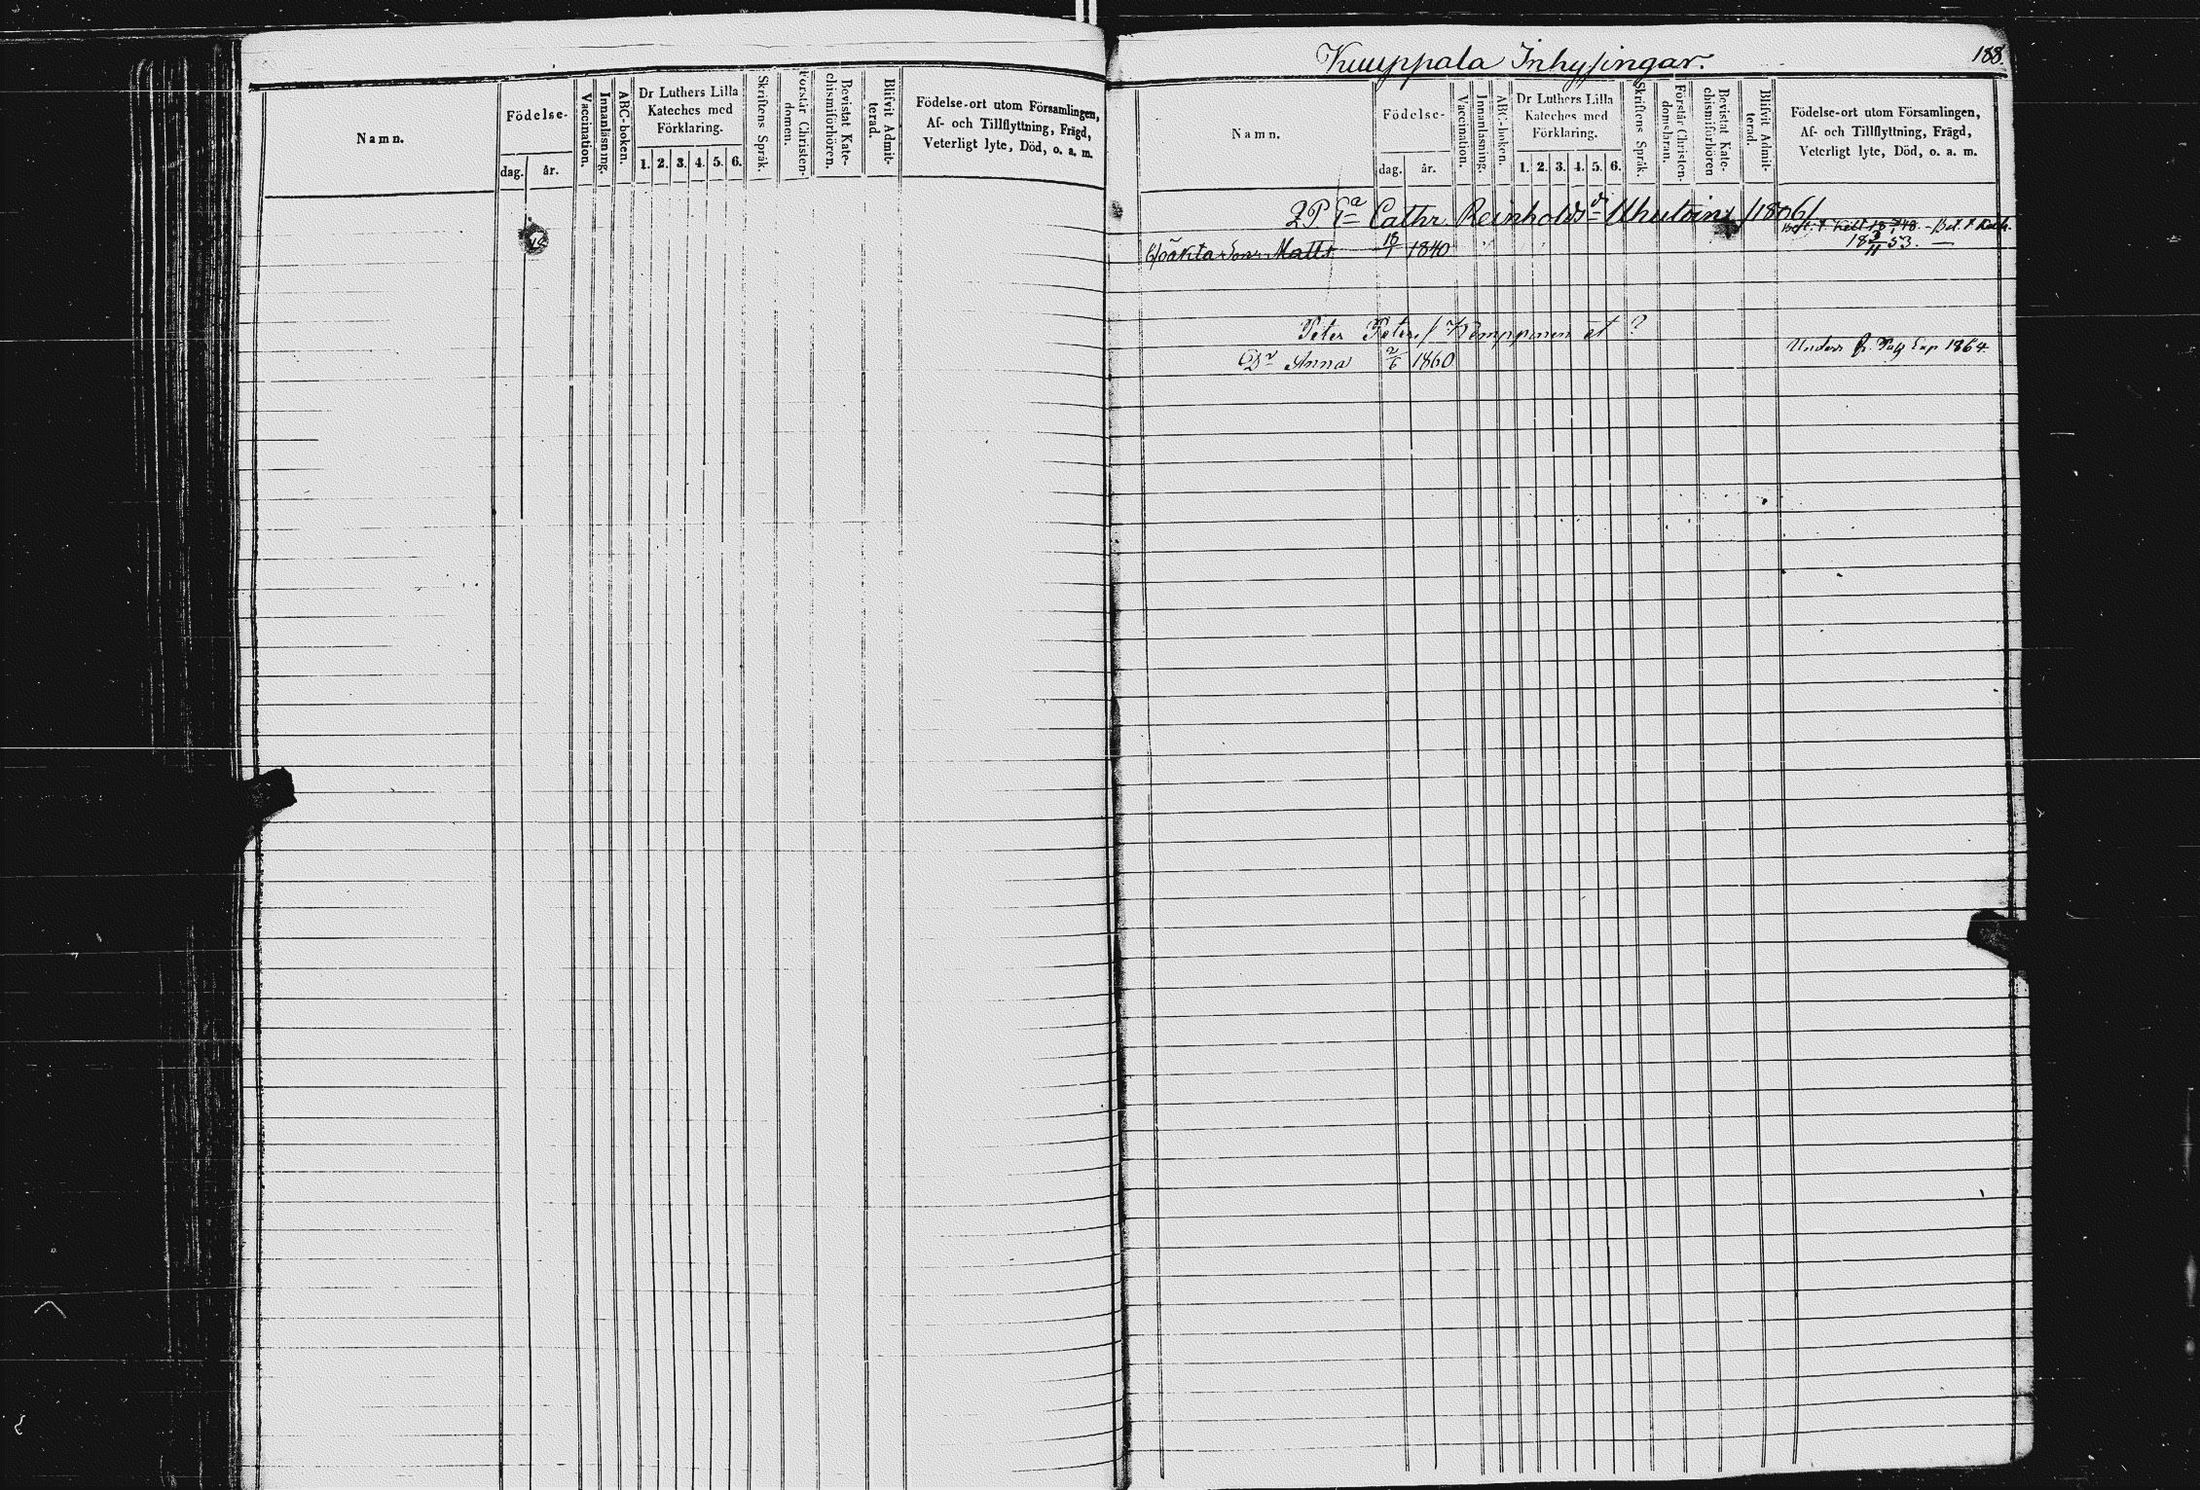 Namn.
Födelse-
dag. år.
Vaccination.
Innanläsning.
ABC-boken.
Dr Luthers Lilla
Kateches med
Förklaring.
1. 2. 3. 4. 5. 6.
Skriftens Språk.
Förstår Christen-
domen.
Bevistat Kate-
chismiförhören.
Blifvit Admit-
terad.
Födelse-ort utom Församlingen,
Af- och Tillflyttning, Frägd,
Veterligt lyte, Död, o. a. m.
Inhysingar. 188.
Namn.
Födelse-
dag. år.
Vaccination.
Innanläsning.
ABC-boken.
Dr Luthers Lilla
Kateches med
Förklaring.
1. 2. 3. 4. 5. 6.
Skriftens Språk.
Förstår Christen-
domsläran.
Bevistat Kate-
chismiförhören
Blifvit Admit-
terad.
Födelse-ort utom Församlingen,
Af- och Tillflyttning, Frägd,
Veterligt lyte, Död, o. a. m.
Cathr. Reinholds /1806/
Oäkta Son Matts 18/1 1840
Peter et ?
Dr Anna 2/6 1860 1864.